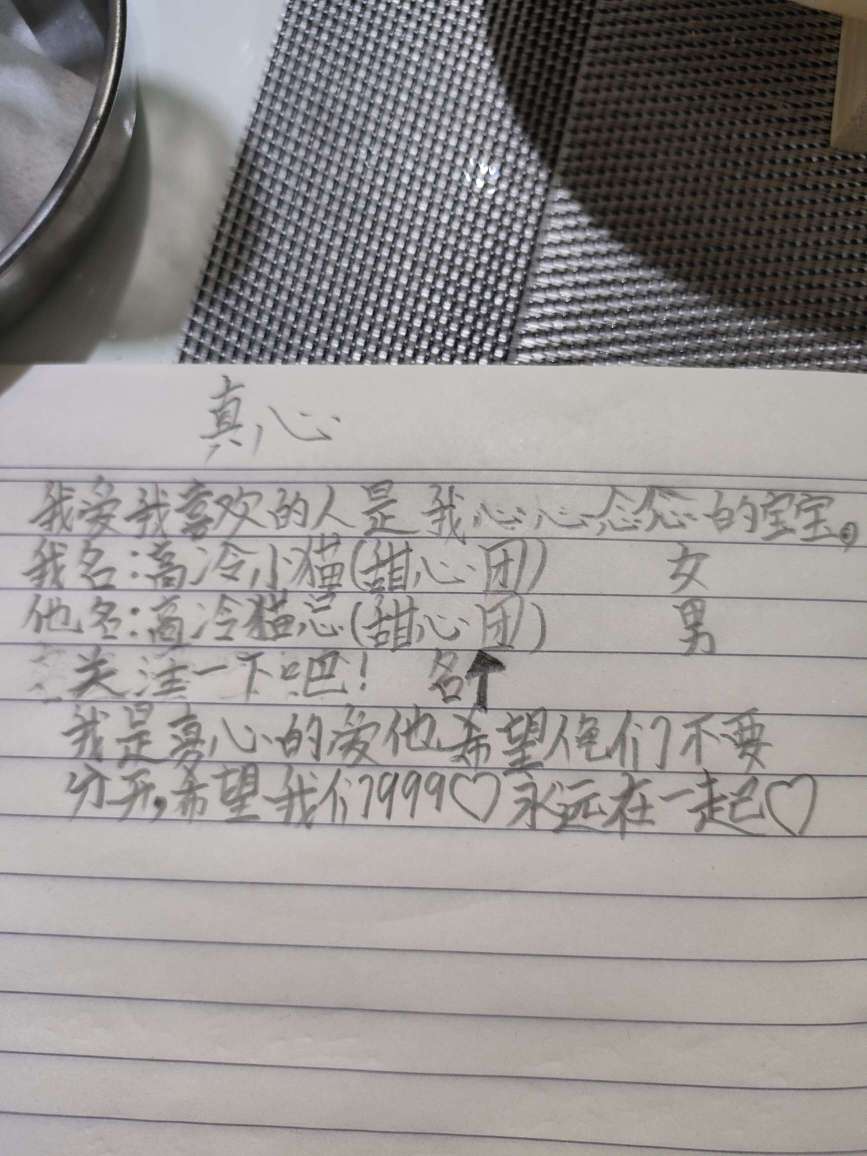 真心
我爱我喜欢的人是我心心念念的宝宝。
我名:高冷小猫(甜心团) 女
他名:高冷猫总(甜心团) 男
关注一下吧! 名↑
我是真心的爱他希望俺们不要
分开,希望我们999♡永远在一起♡